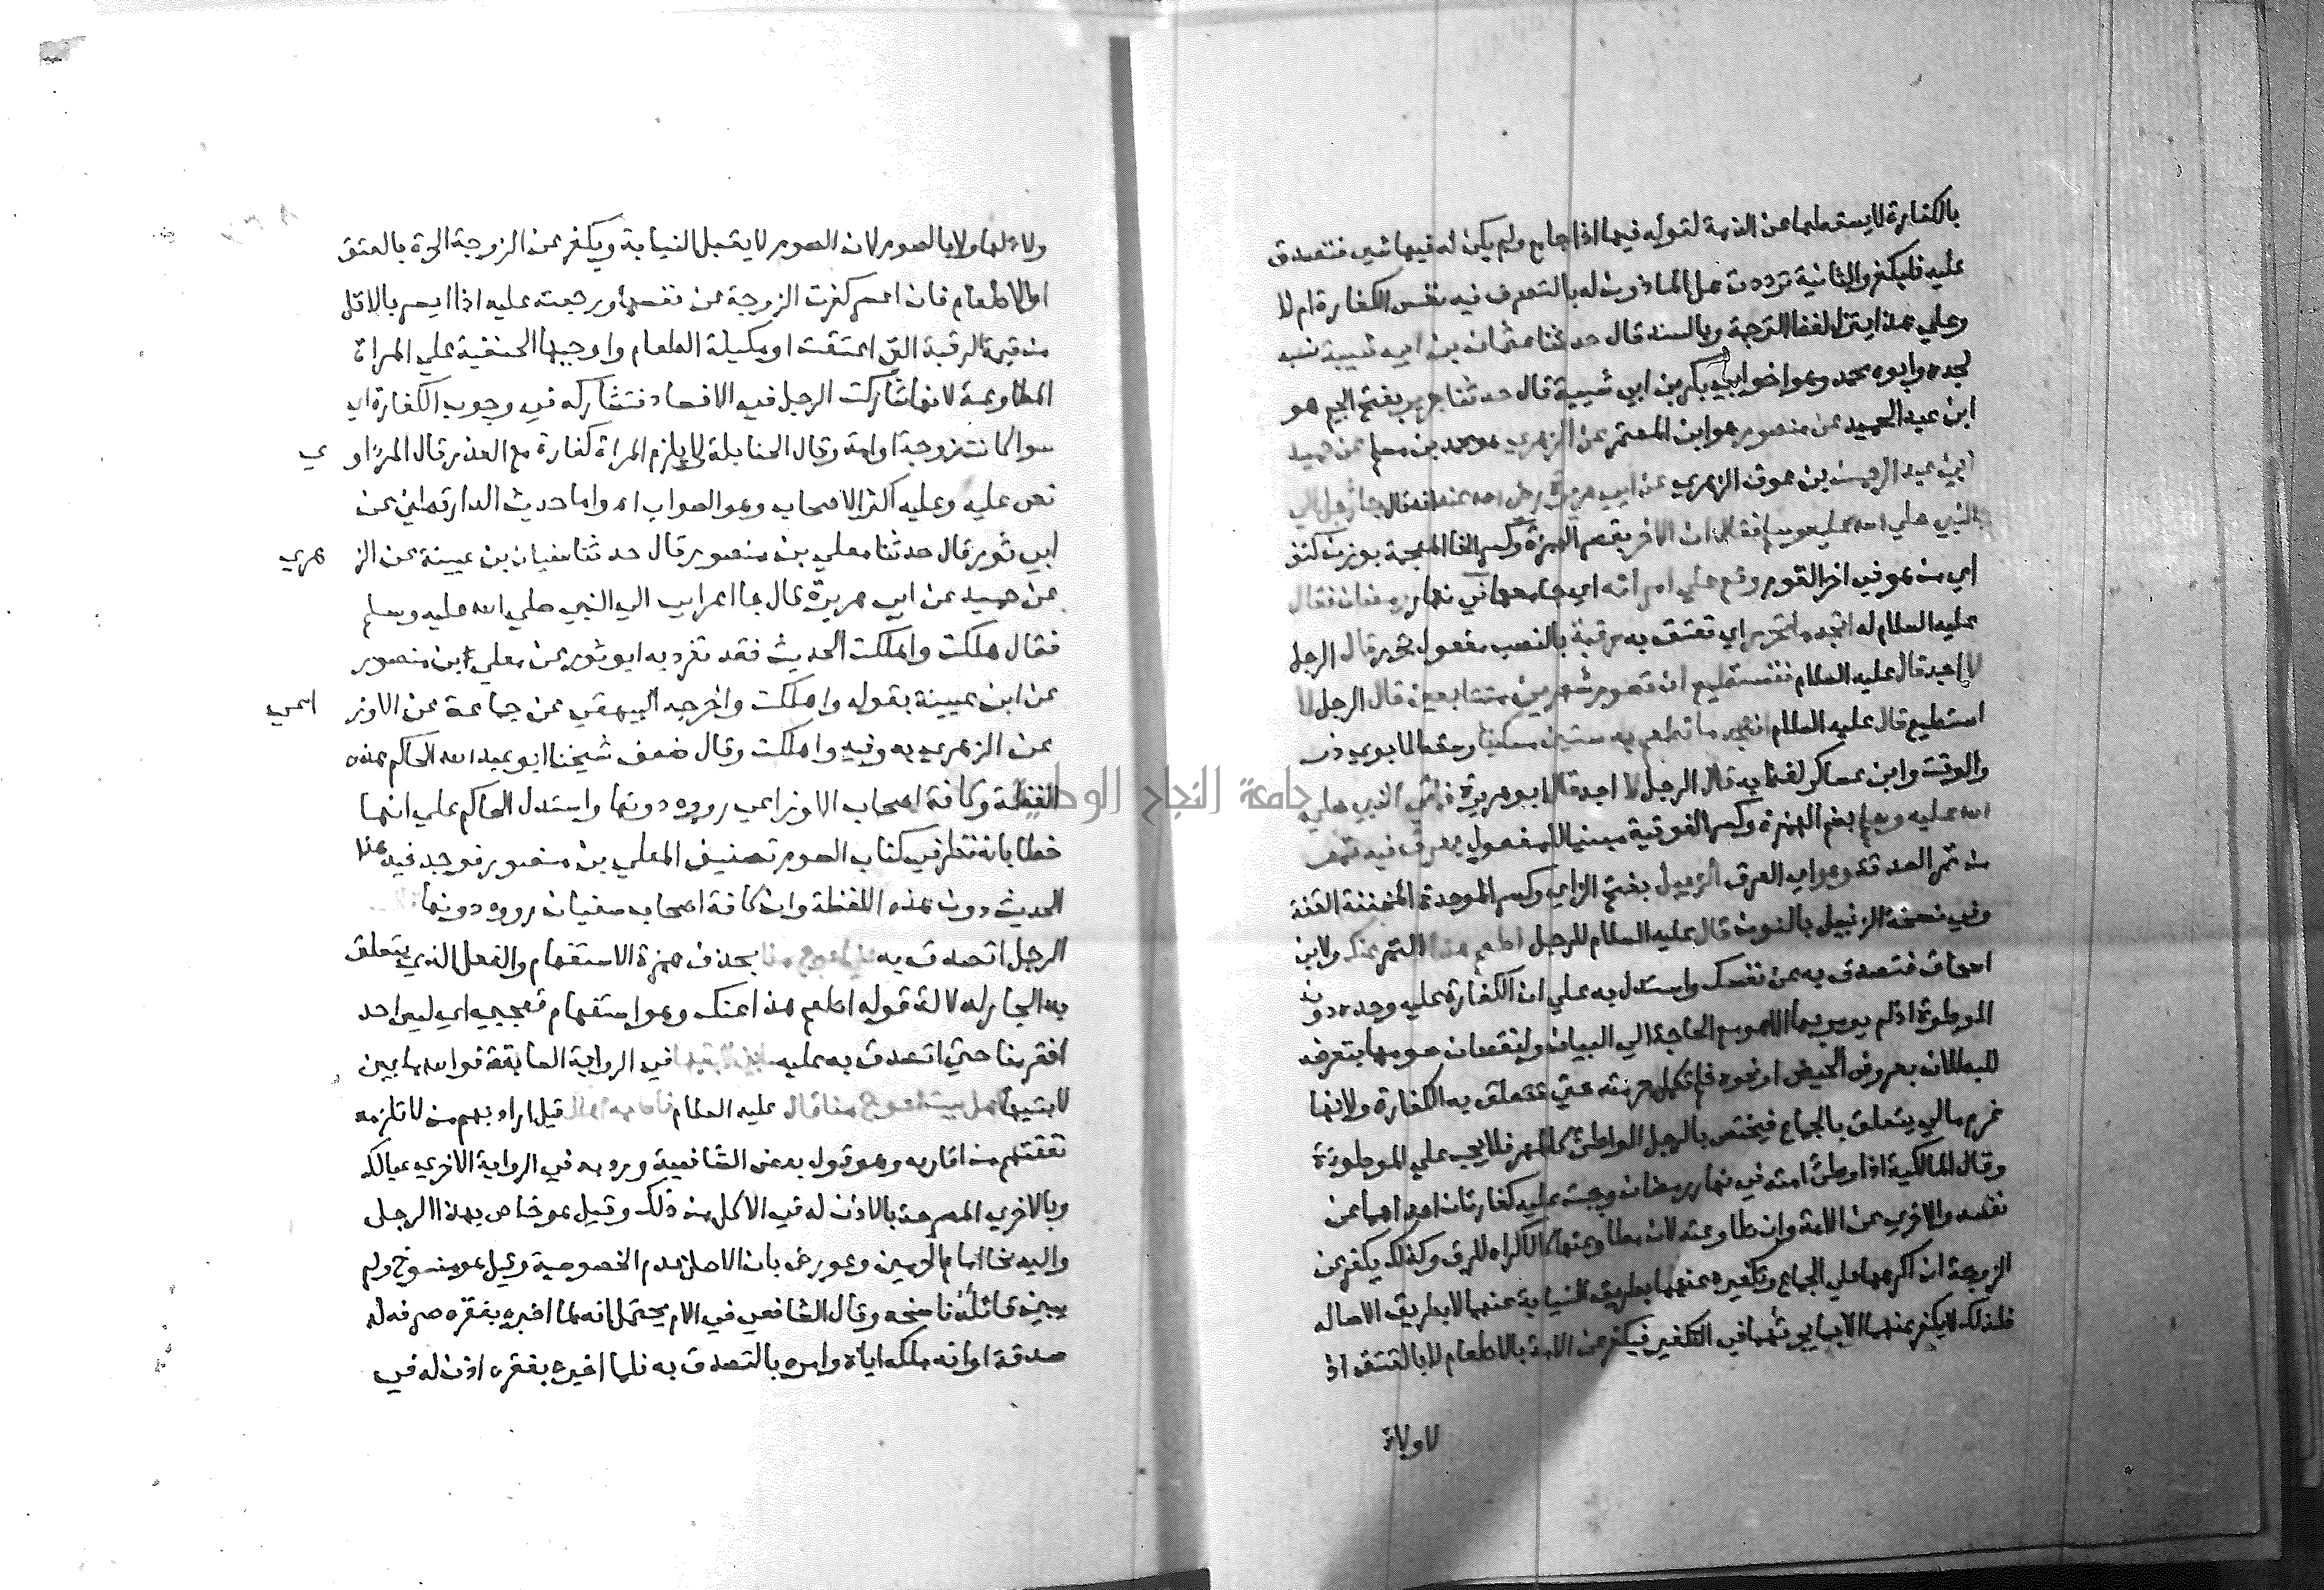 بالكفارة لا يسقطها عن الذمة لقوله فيما اذا جامع ولم يكن له فيها شي فتصدق
عليه فليكفر والثانية ترددت هل الماذون له بالتصرف فيه نفس الكفارة ام لا
وعلي هذا يتنزل لفظ الترجمة وبالسند قال حدثنا عثمان بن ابي شيبة نسبه
لجده وابوه محمد وهو اخو ابي بكر بن ابي شيبة قال حدثنا جرير بفتح الجيم هو
ابن عبد الحميد عن منصور هو ابن المعتمر عن الزهري هو محمد بن مسلم عن حميد
ابن عبد الرحمن بن عوف الزهري عن ابي هريرة رضي الله عنه انه قال جا رجل الي
النبي صلي الله عليه وسلم فقال ان الاخر بقصر الهمزة وكسر الخا المعجمة بوزن كتف
اي من هو في اخر القوم وقع علي امراته اي جامعها في نهار رمضان فقال
عليه السلام له اتجد ما تحرر اي تعتق به رقبة بالنصب مفعول تحرر قال الرجل
لا اجد قال عليه السلام فتستطيع ان تصوم شهرين متتابعين قال الرجل لا
استطيع قال عليه السلام افتجد ما تطعم به ستين مسكينا وسقط لابوي ذر
والوقت وابن عساكر لفظ به قال الرجل لا اجد قال ابو هريرة فاتي النبي صلي
الله عليه وسلم بضم الهمزة وكسر الفوقية مبنيا للمفعول بعرق فيه تمر
من تمر الصدقة وهو اي العرق الزبيل بفتح الزاي وكسر الموحدة المخففة القفة
وفي نسخة الزنبيل بالنون قال عليه السلام للرجل اطعم هذا التمر عنك ولابن
اسحاق فتصدق به عن نفسك واستدل به علي ان الكفارة عليه وحده دون
الموطوة اذ لم يومر بها الا هو مع الحاجة الي البيان ولنقصان صومها بتعرضه
للبطلان بعروض الحيض او نحوه فلم تكمل حرمته حتي تتعلق به الكفارة ولانها
غرم مالي يتعلق بالجماع فيختص بالرجل الواطئ كالمهر فلا يجب علي الموطوءة
وقال المالكية اذا وطئ امته في نهار رمضان وجبت عليه كفارتان احداهما عن
نفسه والاخري عن الامة وان طاوعته لان مطاوعتها كالاكراه للرق وكذلك يكفر عن
الزوجة ان اكرهها علي الجماع وتكفيره عنهما بطريق النيابة عنهما لا بطريق الاصالة
فلذلك لا يكفر عنهما الا بما يجزئهما في التكفير فيكفر عن الامة بالاطعام لا بالعتق اذ
لا ولاء
ولاء لها ولا بالصوم لان الصوم لا يقبل النيابة ويكفر عن الزوجة الحرة بالعتق
او الاطعام فان اعسر كفرت الزوجة عن نفسها ورجعت عليه اذا ايسر بالاقل
من قيمة الرقبة التي اعتقت او مكيلة الطعام واوجبها الحنفية علي المراة
المطاوعة لانها شاركت الرجل في الافساد فتشاركه في وجوب الكفارة اي
سوا كانت زوجة او امة وقال الحنابلة لا يلزم المراة كفارة مع العذر قال المرداوي
نص عليه وعليه اكثر الاصحاب وهو الصواب اه واما حديث الدارقطني عن
ابي ثور قال حدثنا معلي بن منصور قال حدثنا سفيان بن عيينة عن الزهري
عن حميد عن ابي هريرة قال جا اعرابي الي النبي صلي الله عليه وسلم
فقال هلكت واهلكت الحديث فقد تفرد به ابو ثور عن معلي بن منصور
عن ابن عيينة بقوله واهلكت واخرجه البيهقي عن جماعة عن الاوزاعي
عن الزهري به وفيه واهلكت وقال ضعف شيخنا ابو عبد الله الحاكم هذه
اللفظة وكافة اصحاب الاوزاعي رووه دونها واستدل الحاكم علي انها
خطا بانه نظر في كتاب الصوم تصنيف المعلي بن منصور فوجد فيه هذا
الحديث دون هذه اللفظة وان كافة اصحاب سفيان رووه دونها
الرجل اتصدق به علي احوج منا بحذف همزة الاستفهام والفعل الذي يتعلق
به الجار لدلالة قوله اطعم هذا عنك وهو استفهام تعجبي اي ليس احد
افقر منا حتي اتصدق به عليه في الرواية السابقة فوالله ما بين
لابتيها اهل بيت احوج منا قال عليه السلام فاطعمه اهلك قيل اراد بهم من لا تلزمه
نفقتهم من اقاربه وهو قول بعض الشافعية ورد به في الرواية الاخري عيالك
وبالاخري المصرحة بالاذن له في الاكل من ذلك وقيل هو خاص بهذا الرجل
واليه نحا امام الحرمين وعورض بان الاصل عدم الخصوصية وقيل هو منسوخ ولم
يبين قائله ناسخه وقال الشافعي في الام يحتمل انه لما اخبره بفقره صرفه له
صدقة او انه ملكه اياه وامره بالتصدق به فلما اخبره بفقره اذن له في
جامعة النجاح الوطنية